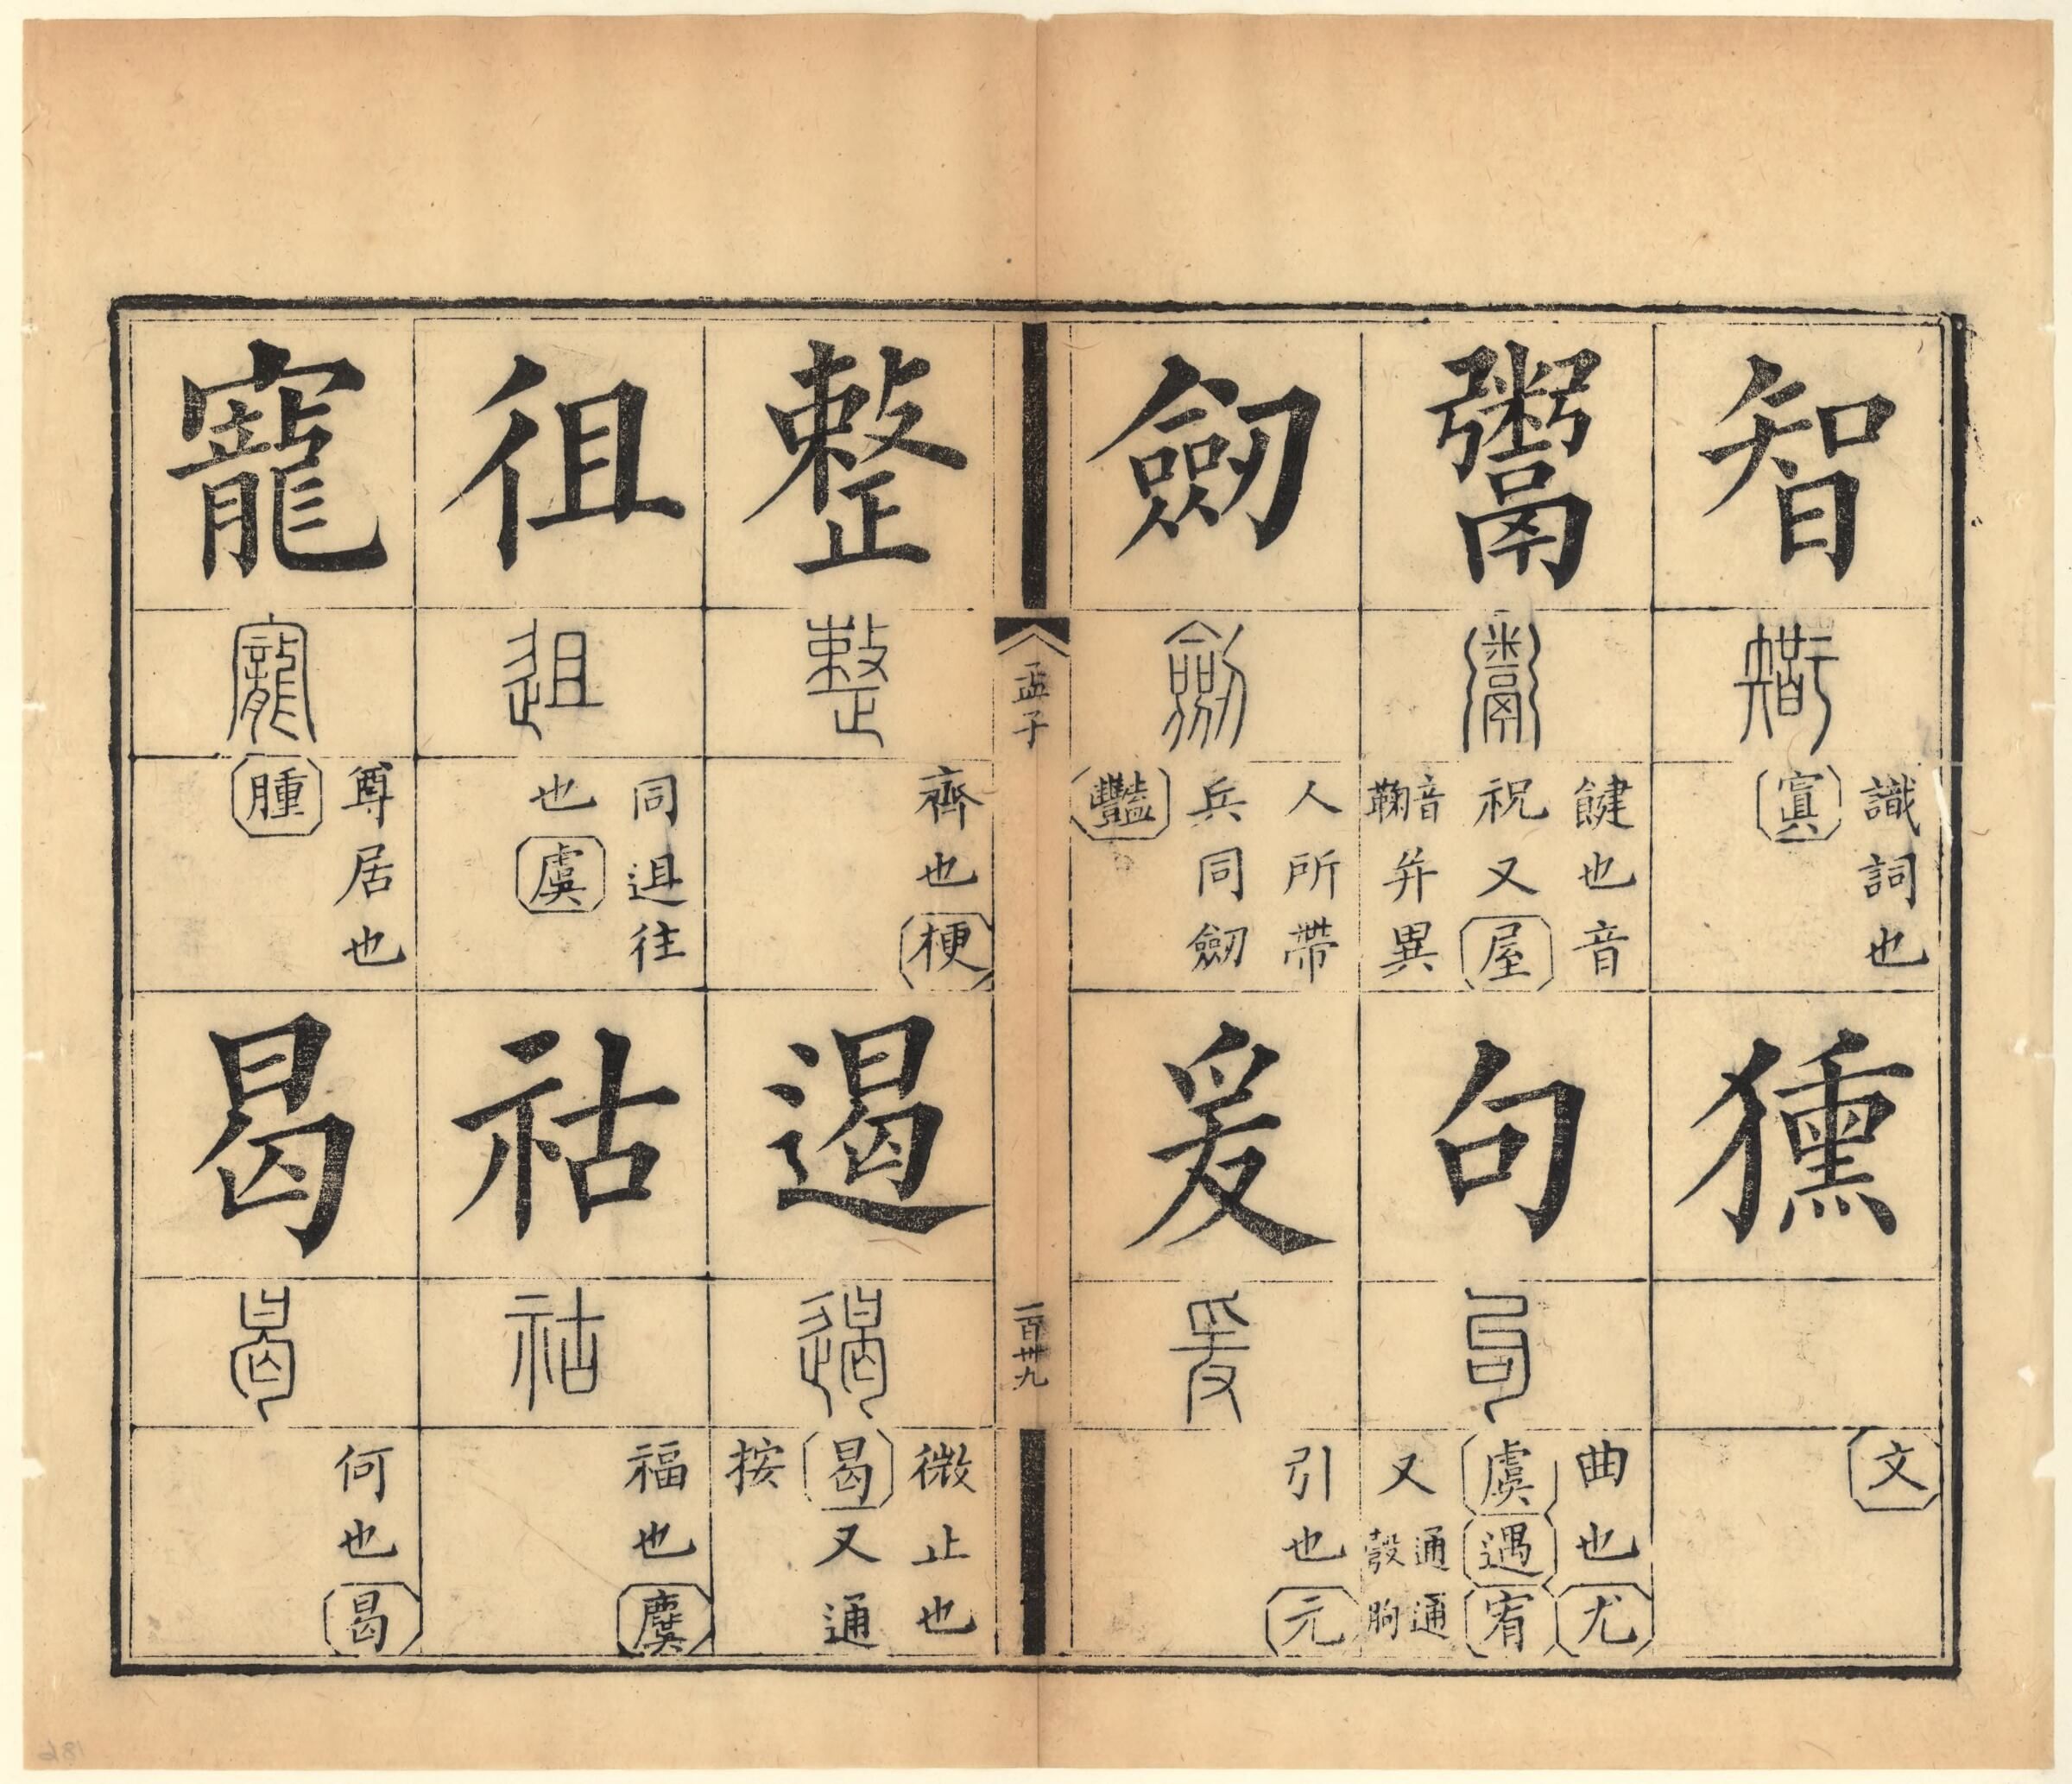 智
識詞也
寘
獯
文
鬻
鍵也音
祝又屋
音鞠
并異
句
曲也尤
虞遇宥
又通彀通朐
劒
人所帶
兵同劒
豔
爰
引也元
孟子
一百卅九
整
齊也梗
遏
微止也
曷又通
按
徂
同迌往
也虞
祜
福也麌
寵
尊居也
腫
曷
何也曷